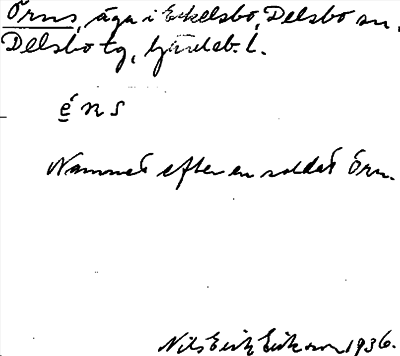 Örns, äga i Eckelsbo, Delsbo sn,
Delsbo tg, Gävleb. l.
é n s
Namnet efter en soldat Örn.
Nils Erik Eriksson 1936.